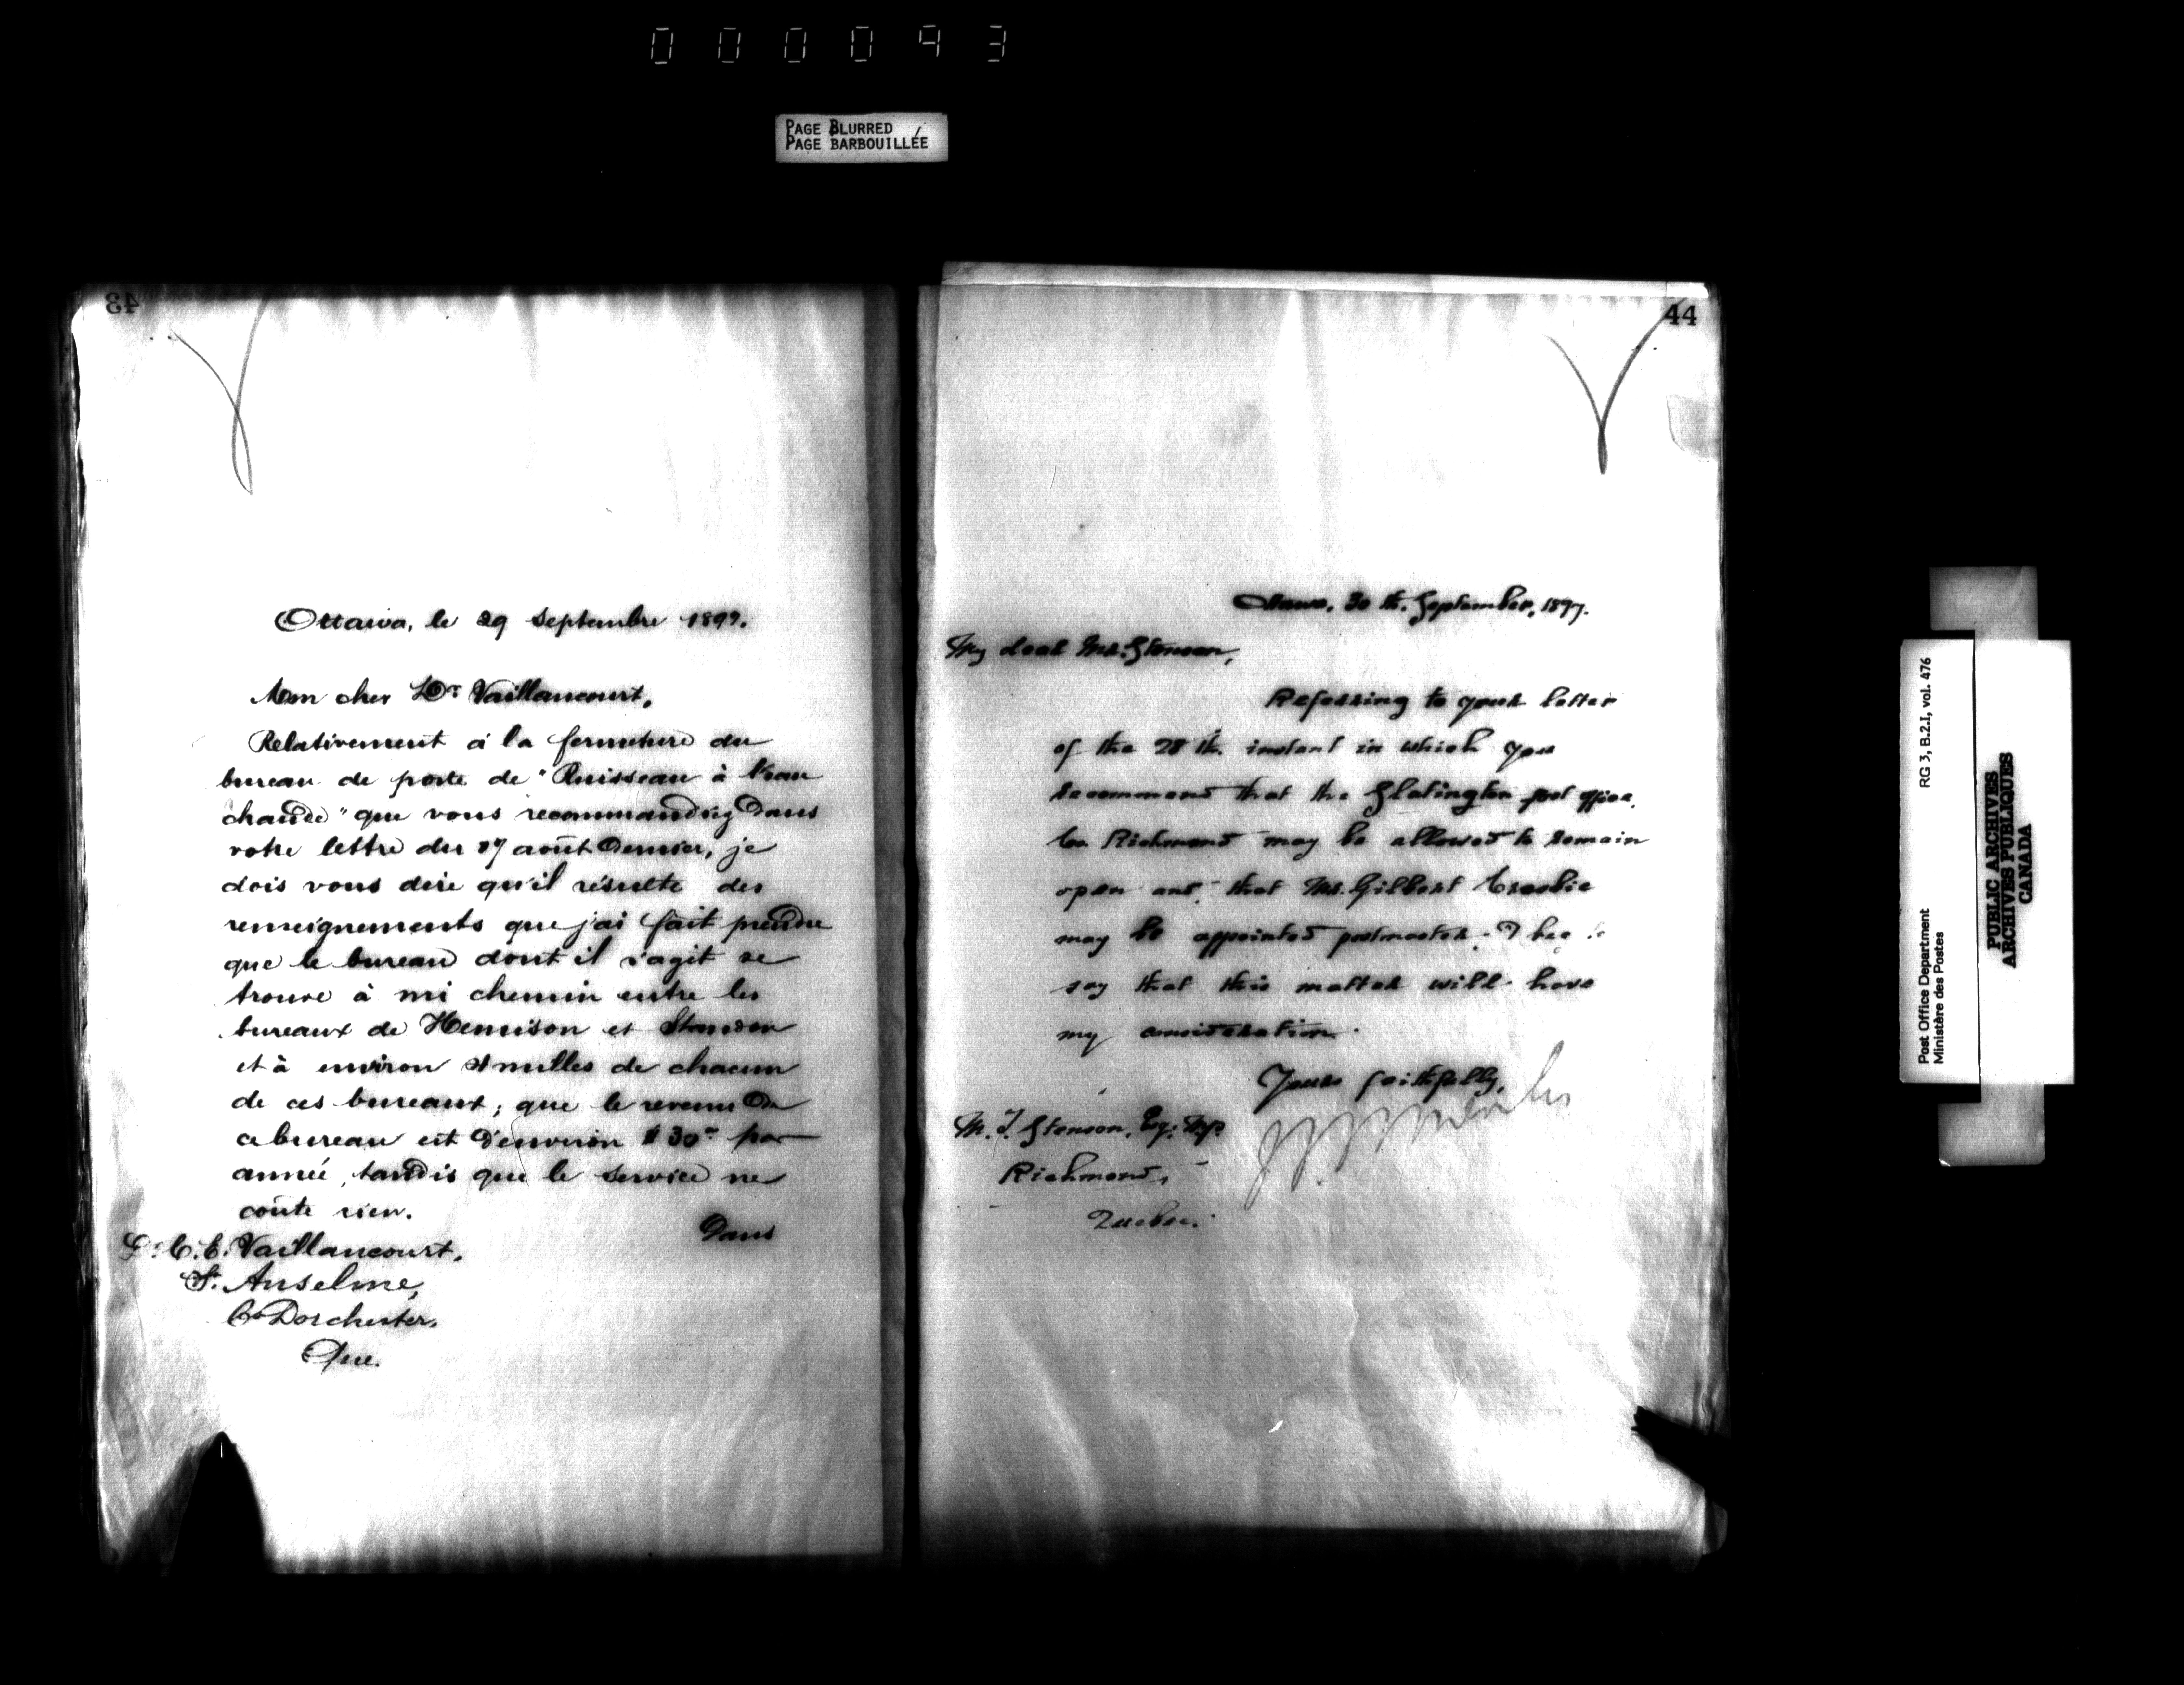 000043
PAGE BLURRED
PAGE BARBOUILLÉE
43
Ottawa, le 29 septembre 1897.
Mon cher Dr Vaillancourt,
Relativement à la fermeture du
bureau de poste de "Ruisseau à l'eau
chaude" que vous recommandiez dans
votre lettre du 27 août dernier, je
dois vous dire qu'il résulte des
renseignements que j'ai fait prendre
que le bureau dont il s'agit se
trouve à mi chemin entre les
bureaux de Hemison et Standon
et à environ milles de chacun
de ces bureaux; que le revenu de
ce bureau est d'environ $30 par
année, tandis que le service ne
coûte rien.
Dans
Dr C. E. Vaillancourt,
St. Anselme,
Co Dorchester,
Que.
44
Ottawa, 30 th. September, 1897.
My dear Mr. Stenson,
Referring to your letter
of the 28 th. instant in which you
recommend that the Slatington post office,
Co. Richmond may be allowed to remain
open and that Mr. Gilbert Crosbie
may be appointed postmaster. I beg to
say that this matter will have
my consideration.
Yours faithfully,
M. T. Stenson, Esq. M.P.
Richmond,
Quebec.
Post Office Department
Ministère des Postes
RG 3, B.2.I, vol. 476
PUBLIC ARCHIVES
ARCHIVES PUBLIQUES
CANADA